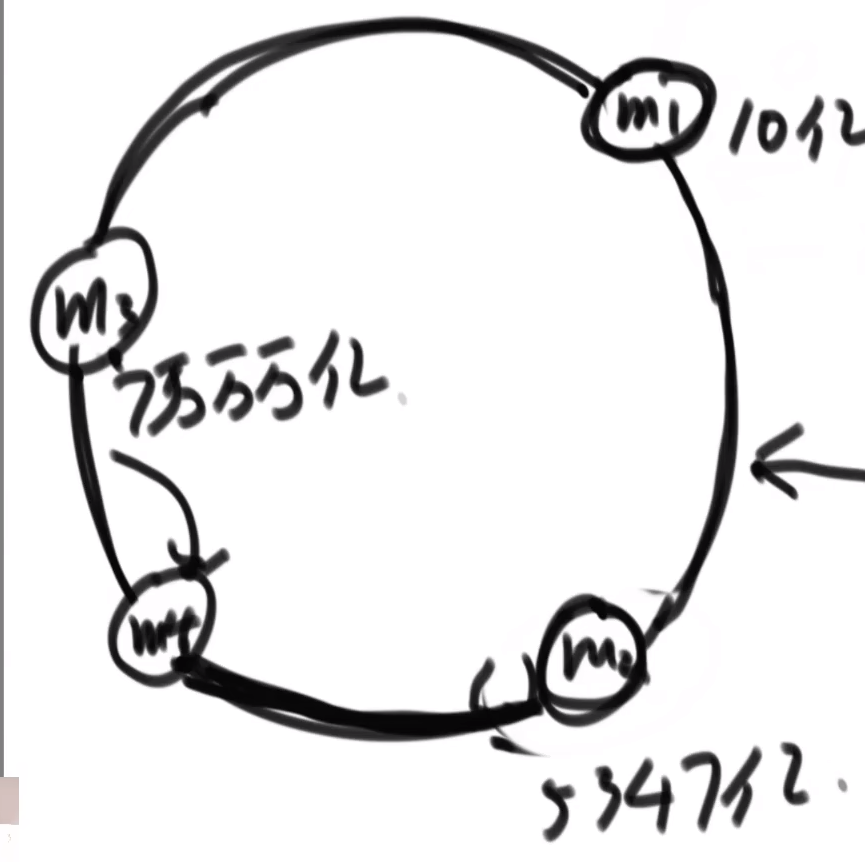 m1 10亿
m3
7万万万亿.
m4
m2
5347亿.